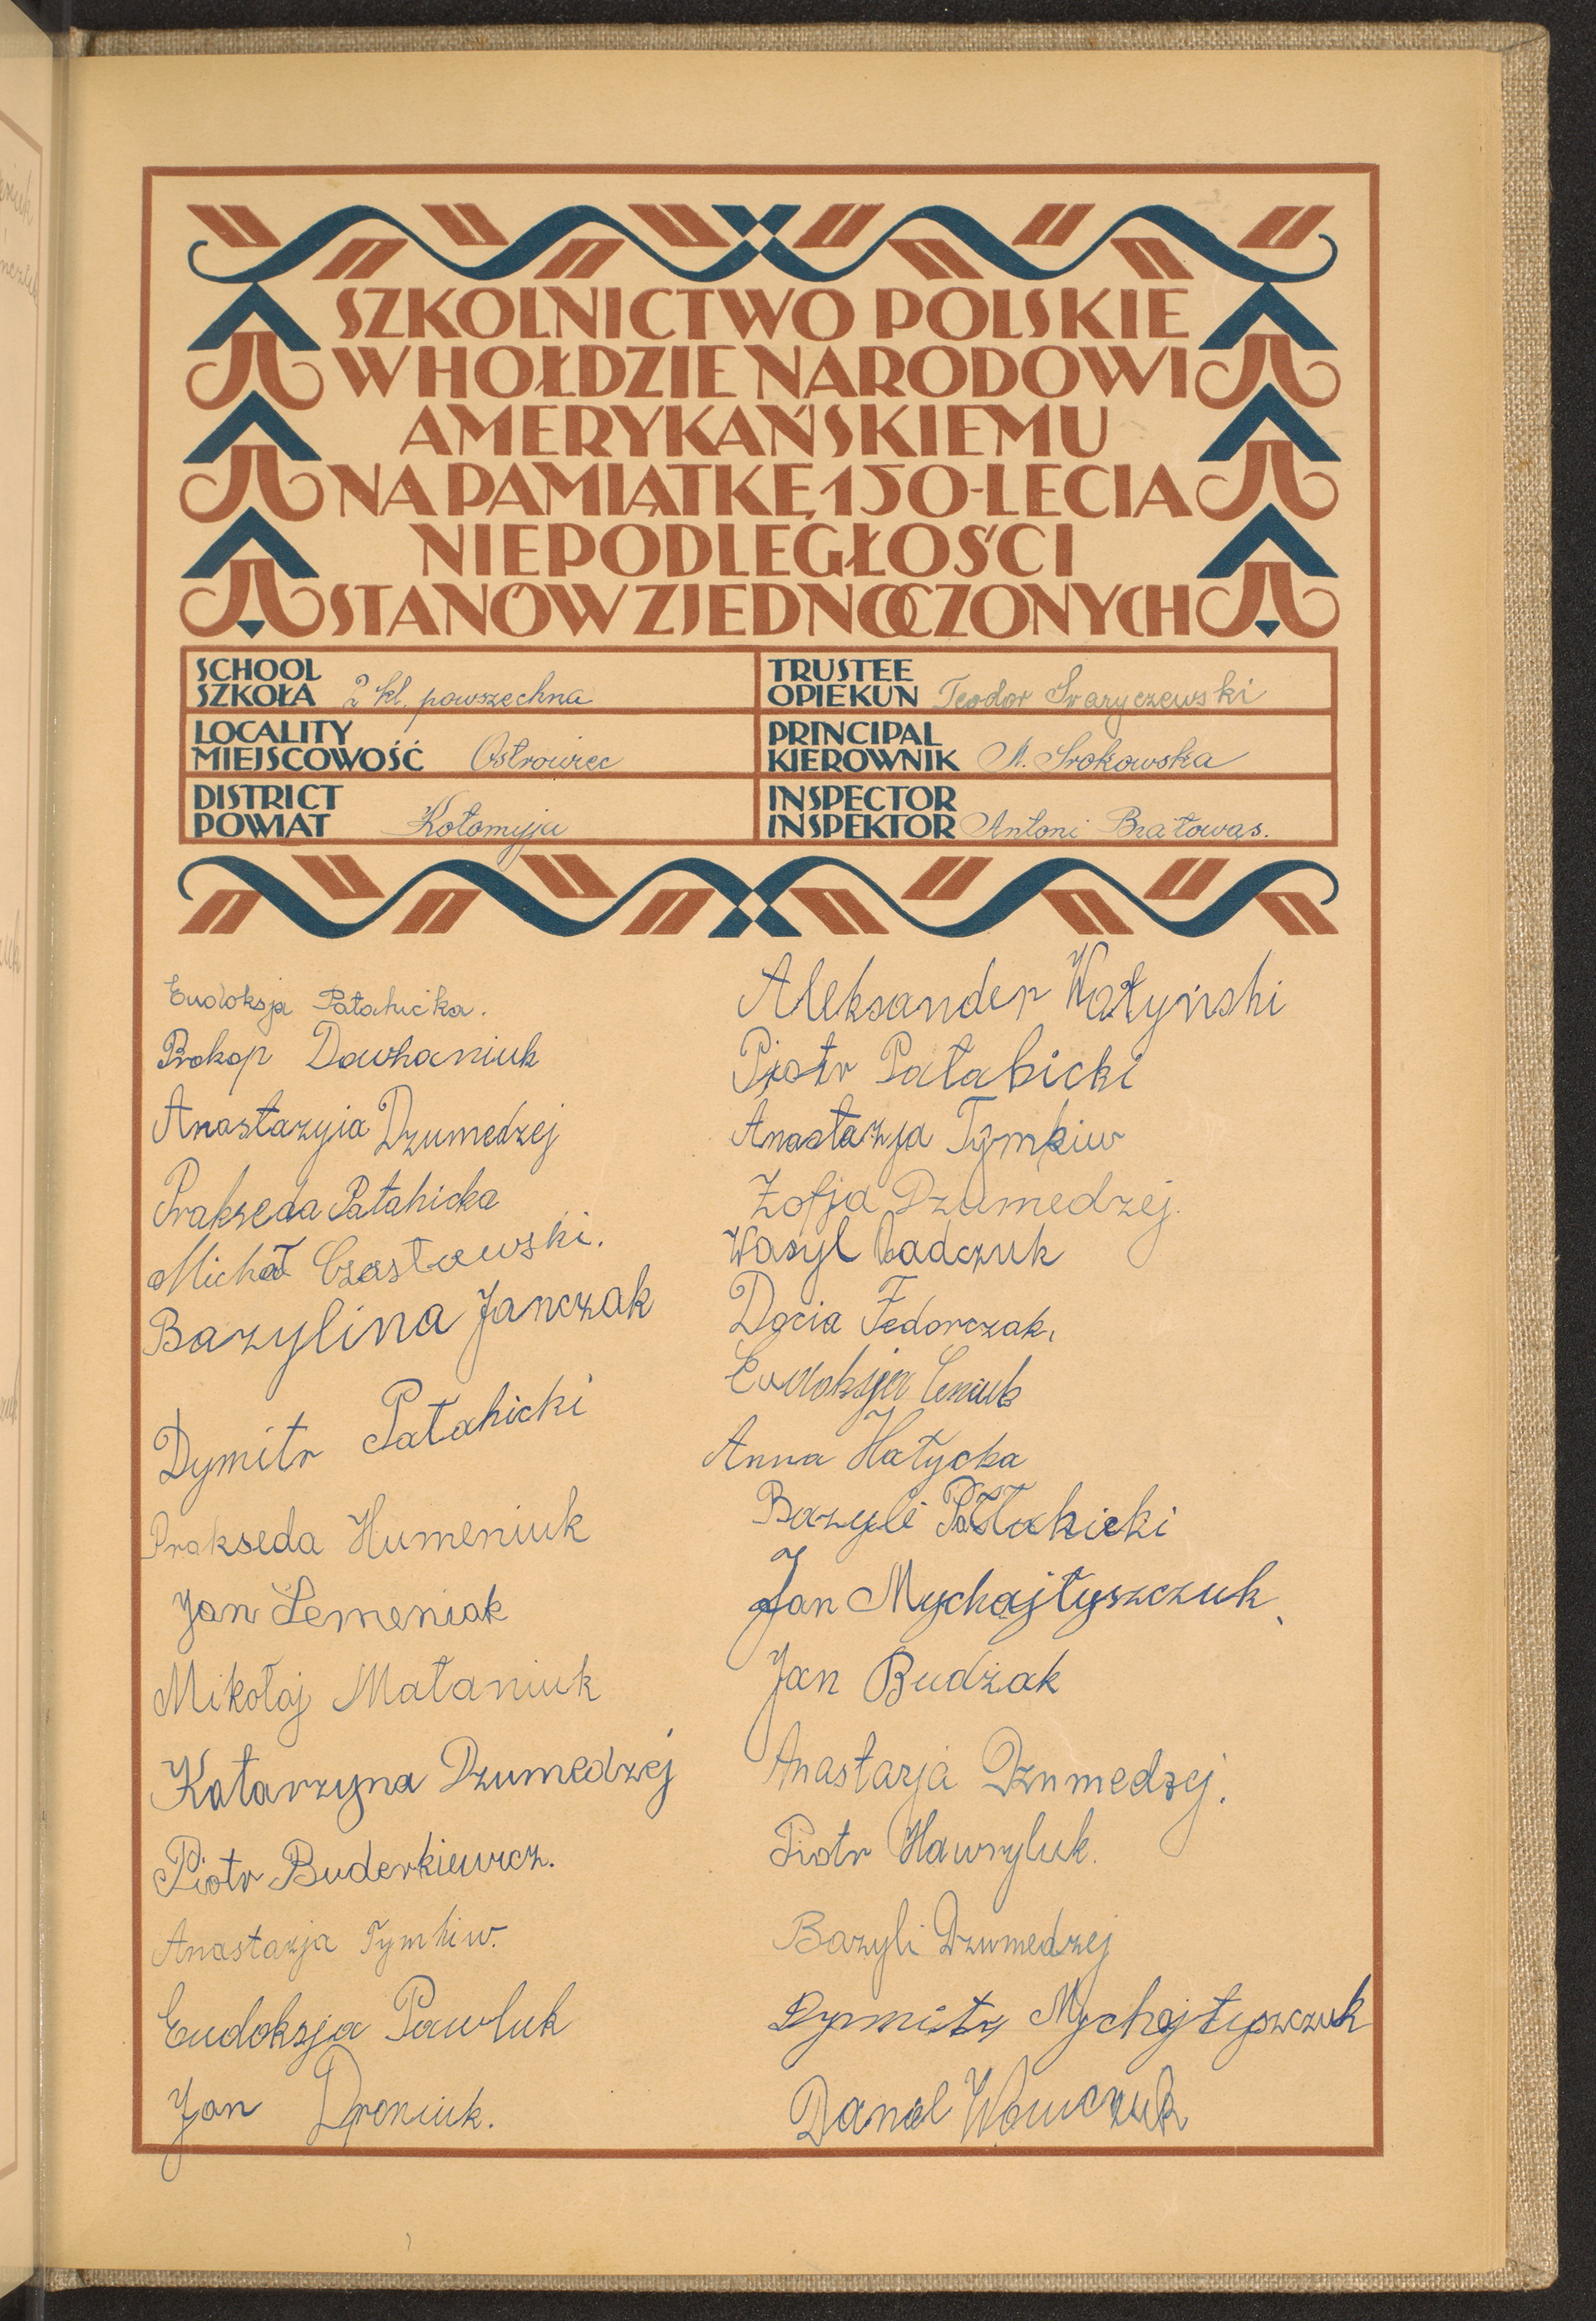 SZKOLNICTWO POLSKIE
W HOŁDZIE NARODOWI
AMERYKAŃSKIEMU
NA PAMIĄTKĘ 150-LECIA
NIEPODLEGŁOŚCI
STANÓW ZJEDNOCZONYCH
SCHOOL
SZKOŁA 2 kl. powszechna
TRUSTEE
OPIEKUN Teodor Swaryczewski
LOCALITY
MIEJSCOWOŚĆ Ostrowiec
PRINCIPAL
KIEROWNIK M. Srokowska
DISTRICT
POWIAT Kołomyja
INSPECTOR
INSPEKTOR Antoni Bratowąs.
Eudoksja Patahicka.
Prokop Dowhaniuk
Anastazyia Dzumedzej
Prakseda Patahicka
Michał Czastowski.
Bazylina Janczak
Dymitr Patahicki
Prakseda Humeniuk
Jan Semeniak
Mikołaj Mataniuk
Katarzyna Dzumedzej
Piotr Buderkiewicz.
Anastazja Tymkiw.
Eudoksja Pawluk
Jan Droniuk.
Aleksander Wołyński
Piotr Patahicki
Anastazja Tymkiw
Zofja Dzumedzej.
Wasyl Badczuk
Docia Fedorczak.
Eudoksja
Anna Hatycka
Bazyli Patahicki
Jan Mychajłyszczuk
Jan Budżak
Anastazja Dzumedzej.
Piotr Hawryluk.
Bazyli Dzumedzej
Dymitr Mychajłyszczuk
Danel Wowczuk